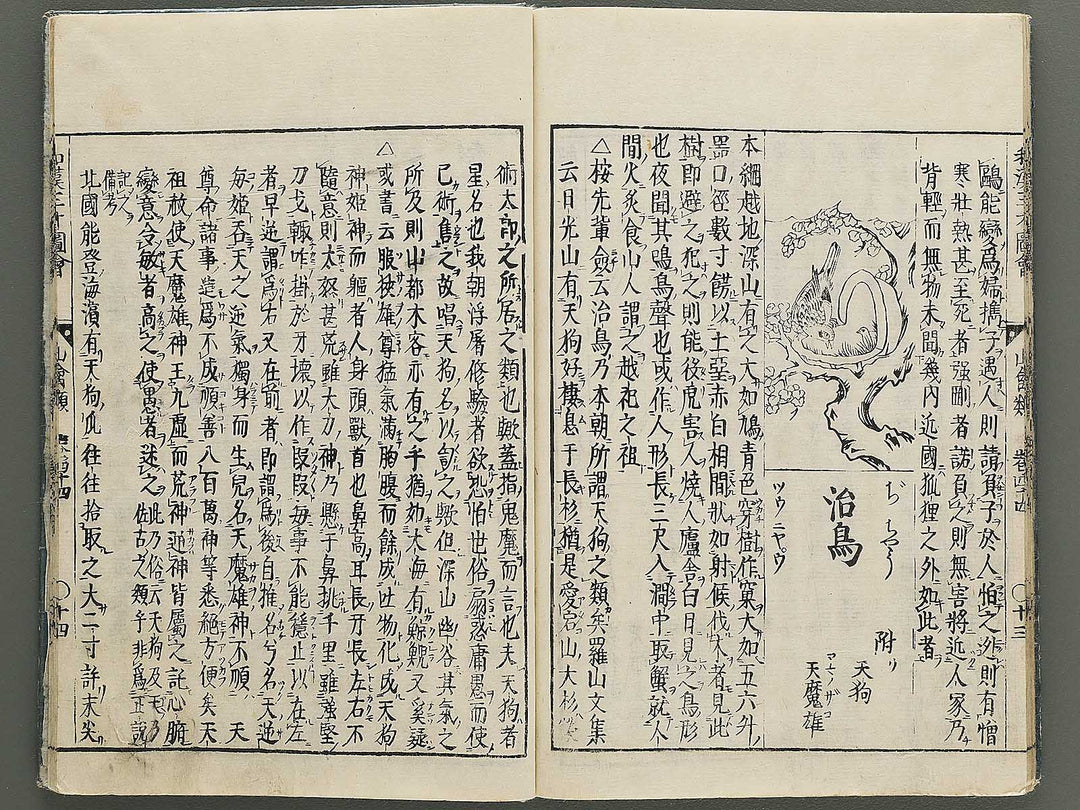 鷗能變爲婦擔子遇人則請負子於人怕之則有憎
寒壯熱甚至死者強剛者諾負之則無害將近人家乃
背輕而無物未聞幾內近國狐狸之外如此者
ぢちやう
治鳥
ツウ ニヤウ
附
天狗
天魔雄
本綱越地深山有之大如鳩青色穿樹作窠大如五六升
噐口徑數寸餝以土堊赤白相間狀如射候伐木者見此
樹即避之犯之則能役虎害人燒人廬舍白日見之鳥形
也夜聞其鳴鳥聲也或作人形長三尺入澗中取蟹就人
間火炙食山人謂之越祀之祖
△桉先軰僉云治鳥乃本朝所謂天狗之類矣羅山文集
云日光山有天狗好棲息于長杉猶是愛宕山大杉
和漢三才圖會
山禽類
卷四十四
〇十三
術太郎之所居之類也歟蓋指鬼魔而言也夫天狗者
星名也我朝浮屠修驗者欲恐怕世俗扇惑庸愚而使
己術售之故唱天狗名以訇之歟但深山幽谷其氣之
所及則山都木客亦有之千猶如大海有鯨鯢又奚疑
△或書云服狹雄尊猛氣滿胸腹而餘成吐物化成天狗
神姬神而軀者人身頭獸首也鼻高耳長牙長左右不
隨意則太怒甚荒雖大力神乃懸于鼻挑千里雖強堅
刀戈輙咋掛於牙壞以作段段每事不能穩止以在左
者早逆謂爲右又在前者即謂爲後自推名兮名天逆
每姬呑天之逆氣獨身而生兒名天魔雄神不順天
尊命諸事造爲不成順善八百萬神等悉絕方便矣天
祖赦使天魔雄神王九虛而荒神逆神皆屬之託心腑
變意令敏者高之使愚者迷之
北國能登海濱有天狗爪往往拾取之大二寸許末尖
和漢三才圖會
山禽類
卷四十四
〇十四